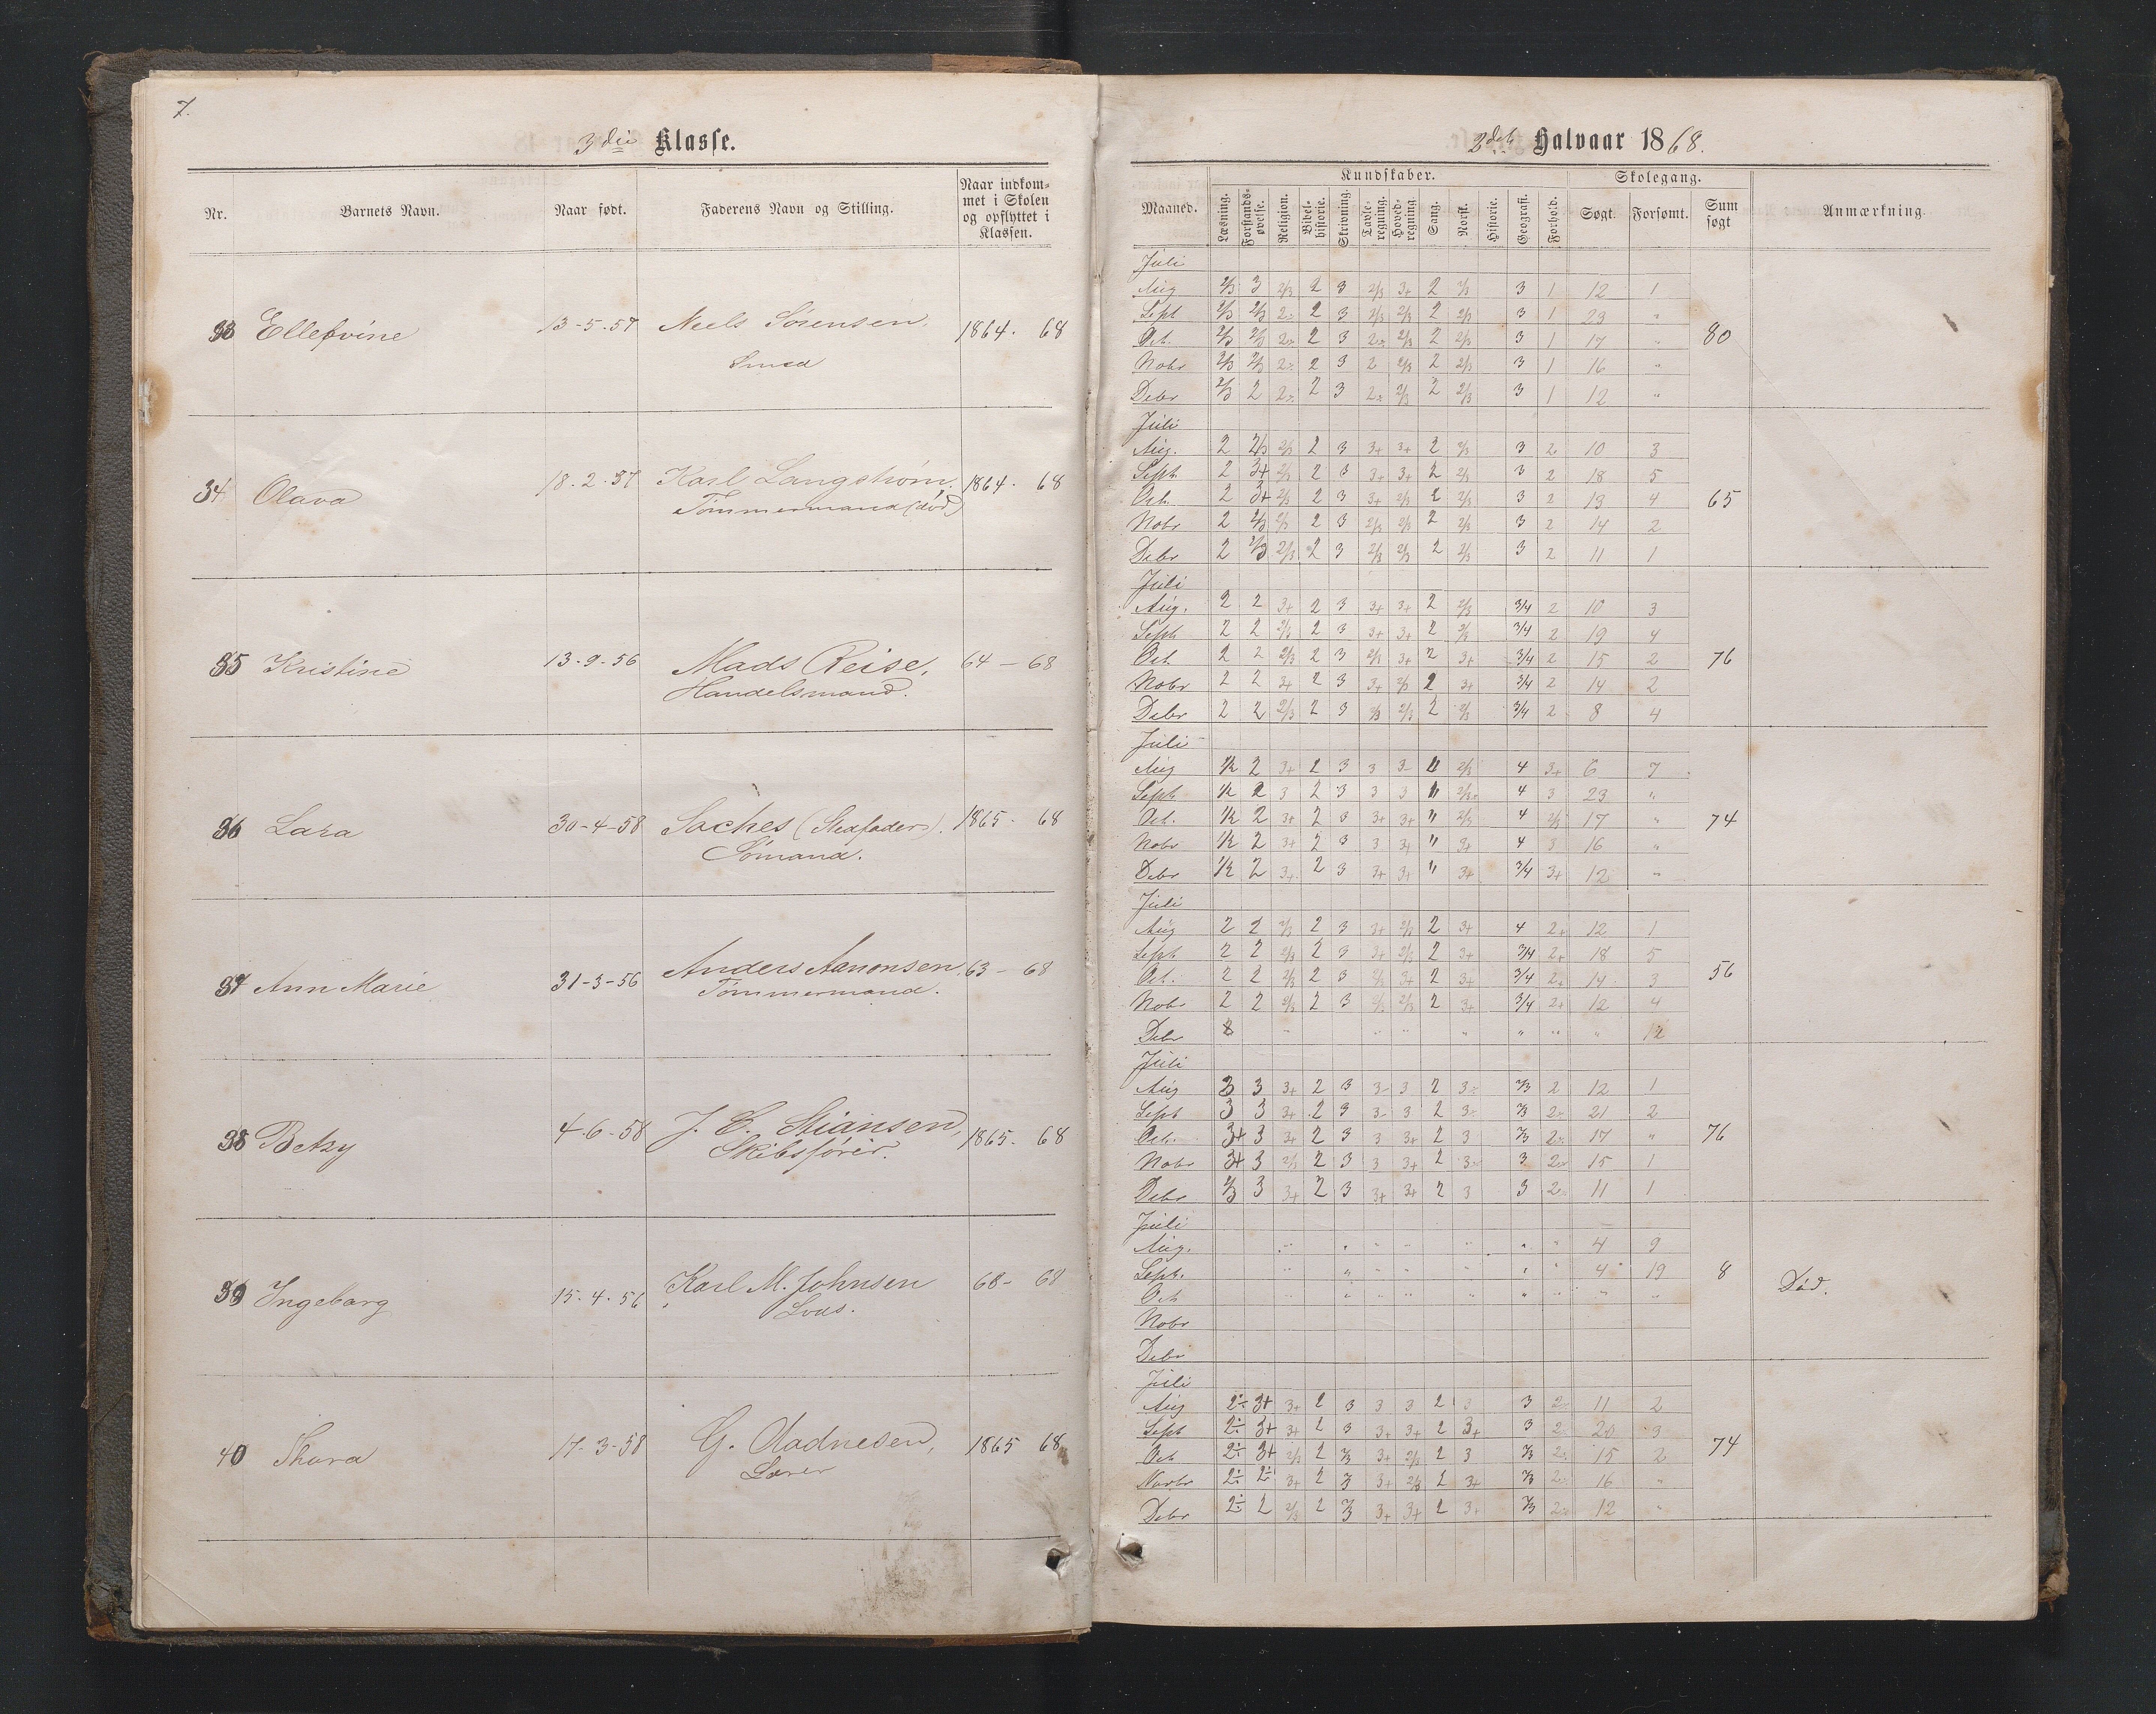 7.
3die Klasse.
Nr. Barnets Navn. Naar født. Faderens Navn og Stilling. Naar indkom-
met i Skolen
og opflyttet i
Klassen.
33 Ellefvine 13-5-57 Niels Sørensen 1864. 68
Smed
34 Olava 18-2-57 Karl Langstrøm, 1864. 68
Tømmermand (død)
35 Kristine 13-9-56 Mads Reise, 64 - 68
Handelsmand.
36 Lara 30-4-58 Saches (Stedfader). 1865. 68
Sømand.
37 Ann Marie 31-3-56 Anders Aanonsen, 63 - 68
Tømmermand.
38 Betzy 4-6-58 J. C. Stiansen, 1865. 68
Skibsfører.
39 Ingeborg 15-4-56 Karl M. Johnsen 68- 68
Lods.
40 Thora 17-3-58 G. Oladnesen, 1865 68
Lærer
2det Halvaar 1868.
Maaned. Kundskaber. Skolegang. Sum
søgt Anmærkning
Læsning. Forstands-
øvelse. Religion. Bibel-
historie. Skrivning. Tavle-
regning. Hoved-
regning. Sang. Norsk. Historie. Geografi. Forhold. Søgt. Forsømt.
Juli
Aug 2/3 3 2/3 2 3 2/3 3+ 2 2/3 3 1 12 1
Sept 2/3 2/3 2 2 3 2/3 2/3 2 2/3 3 1 23 "
Oct. 2/3 2/3 2 2 3 2 2/3 2 2/3 3 1 17 " 80
Nobr 2/3 2/3 2 2 3 2 2/3 2 2/3 3 1 16 "
Debr 2/3 2 2 2 3 2 2/3 2 2/3 3 1 12 "
Juli
Aug. 2 2/3 2/3 2 3 3+ 3+ 2 2/3 3 2 10 3
Sept 2 3+ 2/3 2 3 3+ 3+ 2 2/3 3 2 18 5
Oct. 2 3+ 2/3 2 3 3+ 2/3 2 2/3 3 2 13 4 65
Nobr 2 2/3 2/3 2 3 2/3 2/3 2 2/3 3 2 14 2
Debr 2 2/3 2/3 2 3 2/3 2/3 2 2/3 3 2 11 1
Juli
Aug. 2 2 3+ 2 3 3+ 3+ 2 2/3 3/4 2 10 3
Sept 2 2 2/3 2 3 3+ 3+ 2 2/3 3/4 2 19 4
Oct. 2 2 2/3 2 3 2/3 3+ 2 3+ 3/4 2 15 2 76
Nobr 2 2 3+ 2 3 3+ 2/3 2 3+ 3/4 2 14 2
Debr 2 2 2/3 2 3 2/3 2/3 2 2/3 3/4 2 8 4
Juli
Aug 1/2 2 3+ 2 3 3 3- " 2/3 4 3+ 6 7
Sept 1/2 2 3 2 3 3 3 " 2/3 4 3 23 "
Oct. 1/2 2 3+ 2 3 3+ 3+ " 2/3 4 2/3 17 " 74
Nobr 1/2 2 3+ 2 3 3 3+ " 3+ 4 3 16 "
Debr 1/2 2 3+ 2 3 3+ 3+ " 3+ 3/4 3+ 12 "
Juli
Aug 2 2 2/3 2 3 3+ 2/3 2 3+ 4 2+ 12 1
Sept 2 2 2/3 2 3 3+ 2/3 2 3+ 3/4 2+ 18 5
Oct. 2 2 2/3 2 3 2/3 3+ 2 3+ 3/4 2+ 14 3 56
Nobr 2 2 2/3 2 3 2/3 2/3 2 3+ 3/4 2+ 12 4
Debr " " " " " " " 12
Juli
Aug 3 3 3+ 2 3 3- 3 2 3 2/3 2 12 1
Sept 3 3 3+ 2 3 3- 3 2 3 2/3 2 21 2
Oct. 3+ 3 3+ 2 3 3 3+ 2 3 2/3 2 17 " 76
Nobr 3+ 3 2/3 2 3 3 3+ 2 3 3 2 15 1
Debr 2/3 3 3+ 2 3 3+ 3+ 2 3 3 2 11 1
Juli
Aug. " " " " " " " 4 9
Sept. " " " " " " " 4 19 8 Død.
Oct " " " " " " " " "
Nobr
Debr
Juli
Aug 2÷ 3+ 3+ 2 3 3 3 2 3 3 2 11 2
Sept 2÷ 3+ 3+ 2 3 3+ 3+ 2 3+ 3 2 20 3
Oct 2÷ 3+ 2/3 2 2/3 3+ 2/3 2 3 2/3 2 15 2 74
Novbr 2÷ 2÷ 3+ 2 3 3+ 2/3 2 3+ 2/3 2 16 "
Debr 2÷ 2 2/3 2 2/3 3+ 3+ 2 3+ 2/3 2 12 "